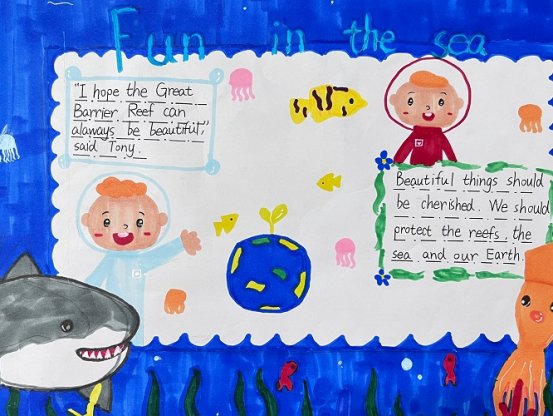 Fun in the sea
"I hope the Great
Barrier Reef can
alaways be beautiful,"
said Tony.
Beautiful things should
be cherished. We should
protect the reefs, the
sea and our Earth.